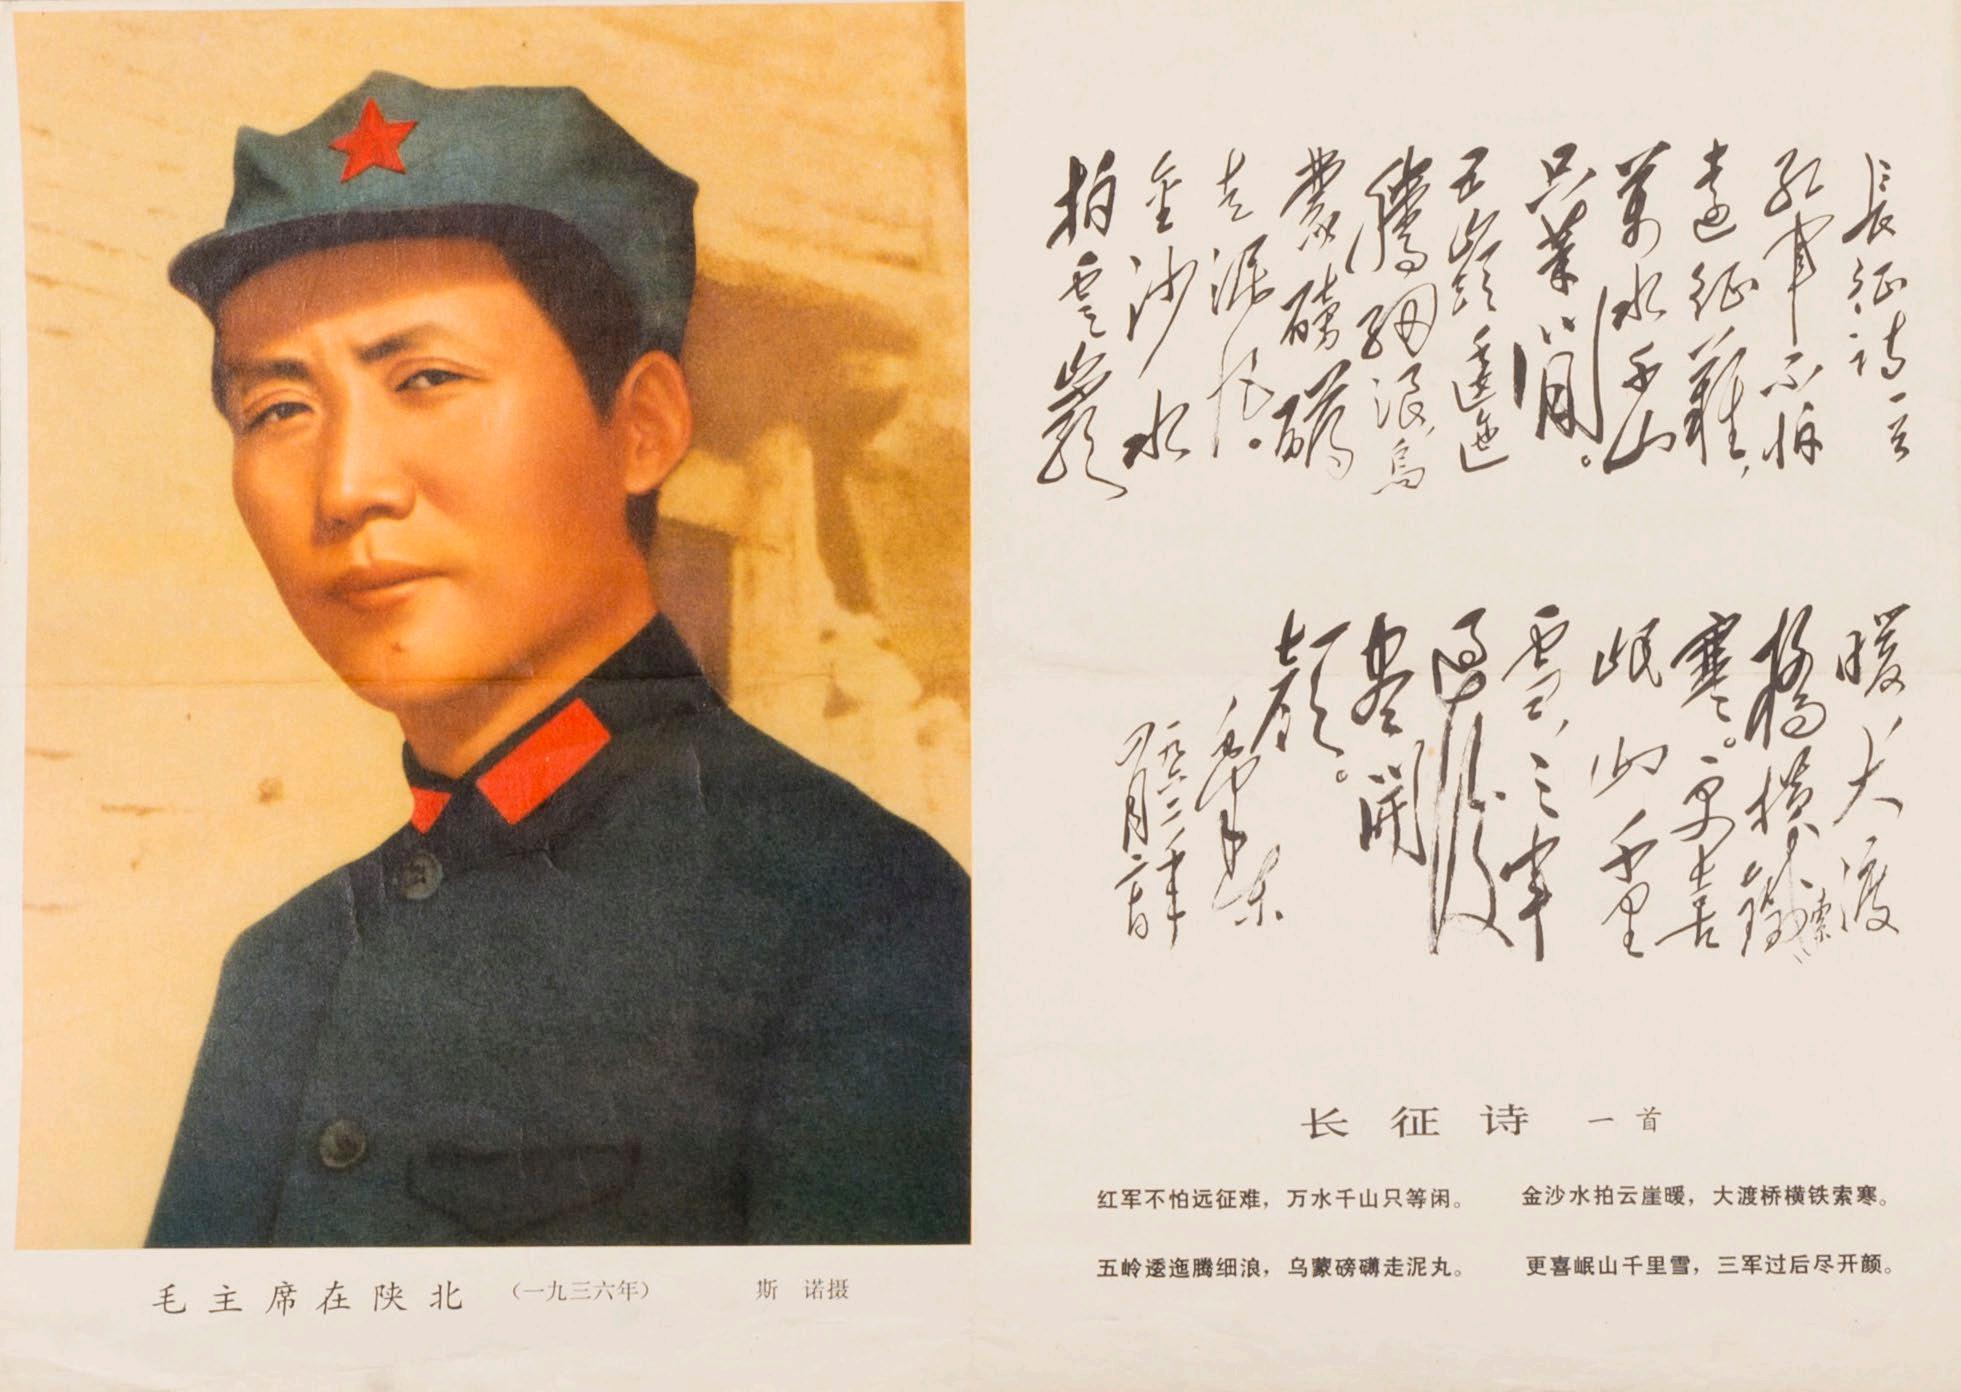 長征詩一首
紅軍不怕
遠征難，
萬水千山
只等閒。
五嶺逶迤
騰細浪，烏
蒙磅礴
走泥丸。
金沙水
拍雲巖
暖大渡
橋橫鐵索
寒。更喜
岷山千里
雪，三軍
過後
盡開
顏。
毛澤東
一九六二年
四月廿日
长征诗 一首
红军不怕远征难，万水千山只等闲。
五岭逶迤腾细浪，乌蒙磅礴走泥丸。
金沙水拍云崖暖，大渡桥横铁索寒。
更喜岷山千里雪，三军过后尽开颜。
毛主席在陕北（一九三六年） 斯诺摄